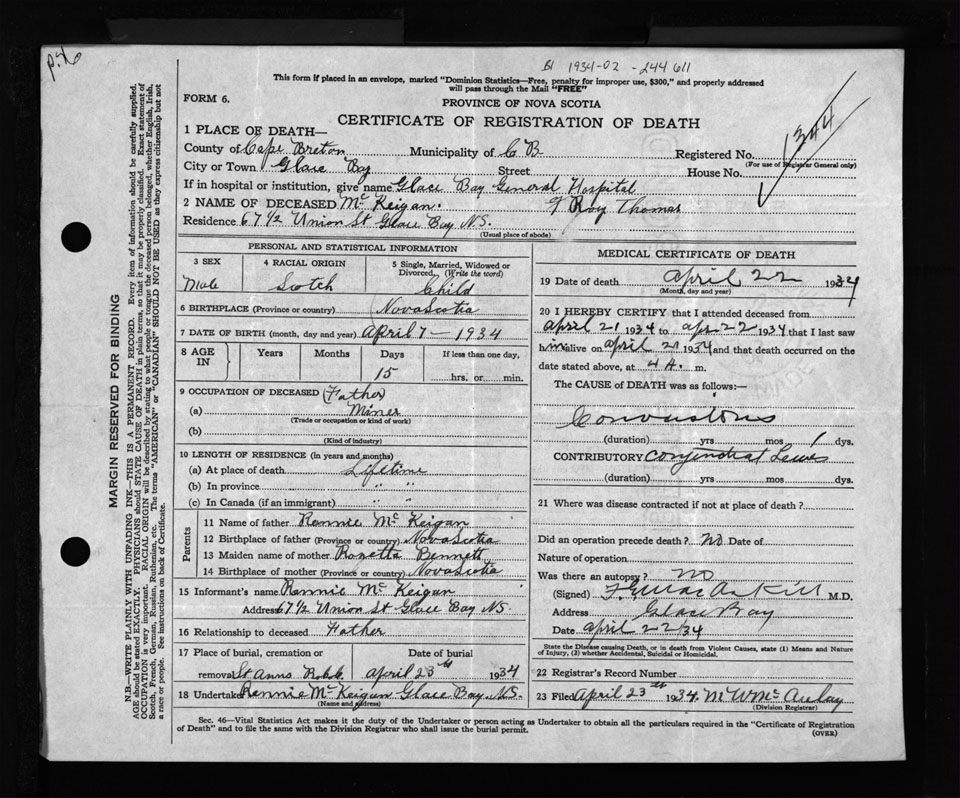 P.26
B1 1934-02 - 244 611
This form if placed in an envelope, marked "Dominion Statistics—Free, penalty for improper use, $300," and properly addressed
will pass through the Mail "FREE"
FORM 6.
PROVINCE OF NOVA SCOTIA
CERTIFICATE OF REGISTRATION OF DEATH
344
1 PLACE OF DEATH—
County of Cape Breton Municipality of C B Registered No.
(For use of Registrar General only)
City or Town Glace Bay Street House No.
If in hospital or institution, give name Glace Bay General Hospital
2 NAME OF DECEASED McKeigan. Roy Thomas
Residence 67½ Union St Glace Bay N.S.
(Usual place of abode)
PERSONAL AND STATISTICAL INFORMATION
3 SEX 4 RACIAL ORIGIN 5 Single, Married, Widowed or Divorced, (Write the word)
Male Scotch Child
6 BIRTHPLACE (Province or country) Nova Scotia
7 DATE OF BIRTH (month, day and year) April 7 - 1934
8 AGE IN Years Months Days If less than one day,
15 hrs. or min.
9 OCCUPATION OF DECEASED (Father)
(a) Miner
(Trade or occupation or kind of work)
(b)
(Kind of industry)
10 LENGTH OF RESIDENCE (in years and months)
(a) At place of death Lifetime
(b) In province " "
(c) In Canada (if an immigrant) " "
Parents
11 Name of father Rennie McKeigan
12 Birthplace of father (Province or country) Nova Scotia
13 Maiden name of mother Rozetta Bennett
14 Birthplace of mother (Province or country) Nova Scotia
15 Informant's name Rennie McKeigan
Address 67½ Union St Glace Bay NS
16 Relationship to deceased Father
17 Place of burial, cremation or Date of burial
removal St Anns April 23th 1934
18 Undertaker Rennie McKeigan Glace Bay N.S.
(Name and address)
MEDICAL CERTIFICATE OF DEATH
19 Date of death April 22 1934
(Month, day and year)
20 I HEREBY CERTIFY that I attended deceased from
April 21 1934 to Apr 22 1934 that I last saw
him alive on April 21 1934 and that death occurred on the
date stated above, at 4 A. m.
The CAUSE of DEATH was as follows:—
Convulsions
(duration) yrs mos 1 dys.
CONTRIBUTORY
(duration) yrs mos dys.
21 Where was disease contracted if not at place of death?
Did an operation precede death? No Date of
Nature of operation
Was there an autopsy? No
(Signed) M.D.
Address Glace Bay
Date April 22 34
State the Disease causing Death, or in death from Violent Causes, state (1) Means and Nature
of Injury, (2) whether Accidental, Suicidal or Homicidal.
22 Registrar's Record Number
23 Filed April 23th 1934. M W McAulay
(Division Registrar)
Sec. 46—Vital Statistics Act makes it the duty of the Undertaker or person acting as Undertaker to obtain all the particulars required in the "Certificate of Registration
of Death" and to file the same with the Division Registrar who shall issue the burial permit.
(OVER)
MARGIN RESERVED FOR BINDING
N.B.—WRITE PLAINLY WITH UNFADING INK—THIS IS A PERMANENT RECORD. Every item of information should be carefully supplied.
AGE should be stated EXACTLY. PHYSICIANS should STATE CAUSE OF DEATH in plain terms, so that it may be properly classified. Exact statement of
OCCUPATION is very important. RACIAL ORIGIN will be described by stating to what people or tongue the deceased person belonged, whether English, Irish,
Scotch, French, German, Russian, Ruthenian, etc. The terms "AMERICAN" or "CANADIAN" SHOULD NOT BE USED as they express citizenship but not
a race or people. See instructions on back of Certificate.